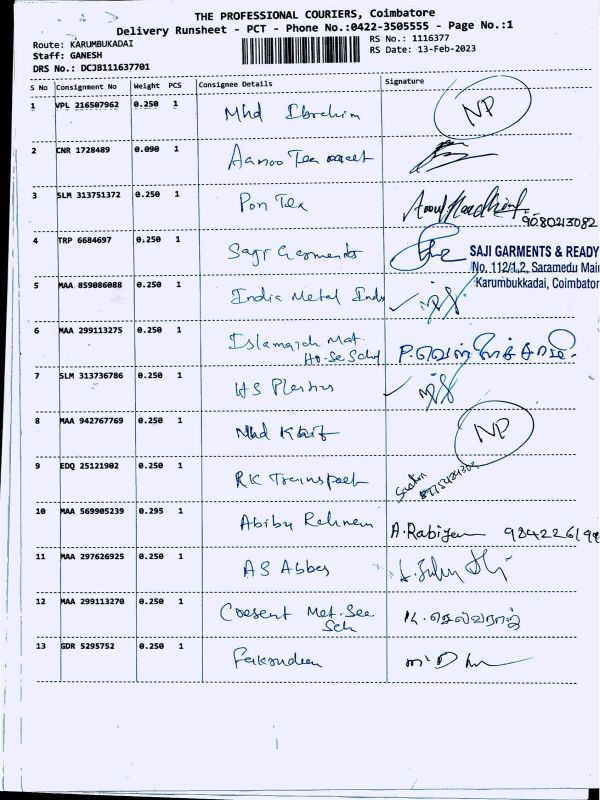 THE PROFESSIONAL COURIERS, Coimbatore
Delivery Runsheet - PCT - Phone No.:0422-3505555 - Page No.:1
Route: KARUMBUKADAI RS No.: 1116377
Staff: GANESH RS Date: 13-Feb-2023
DRS No.: DCJB111637701
S No Consignment No Weight PCS Consignee Details Signature
1 VPL 216507962 0.250 1 Mhd Ibrahim NP
2 CNR 1728489 0.090 1 Aanoo Tea
3 SLM 313751372 0.250 1 Pon Tex 9080213082
4 TRP 6684697 0.250 1 Saji Garments SAJI GARMENTS & READY
No. 112/1,2, Saramedu Main
Karumbukkadai, Coimbator
5 MAA 859086088 0.250 1 India Metal Inds
6 MAA 299113275 0.250 1 Mat.
Hr. Se Schl
7 SLM 313736786 0.250 1 HS Plastics
8 MAA 942767769 0.250 1 Mhd NP
9 EDQ 25121902 0.250 1 RK Transport
10 MAA 569905239 0.295 1 Abibu Rehman A. 984226
11 MAA 297626925 0.250 1 AS Abbas
12 MAA 299113270 0.250 1 Cresent Met. See
Sch K. செல்வராஜ்
13 GDR 5295752 0.250 1